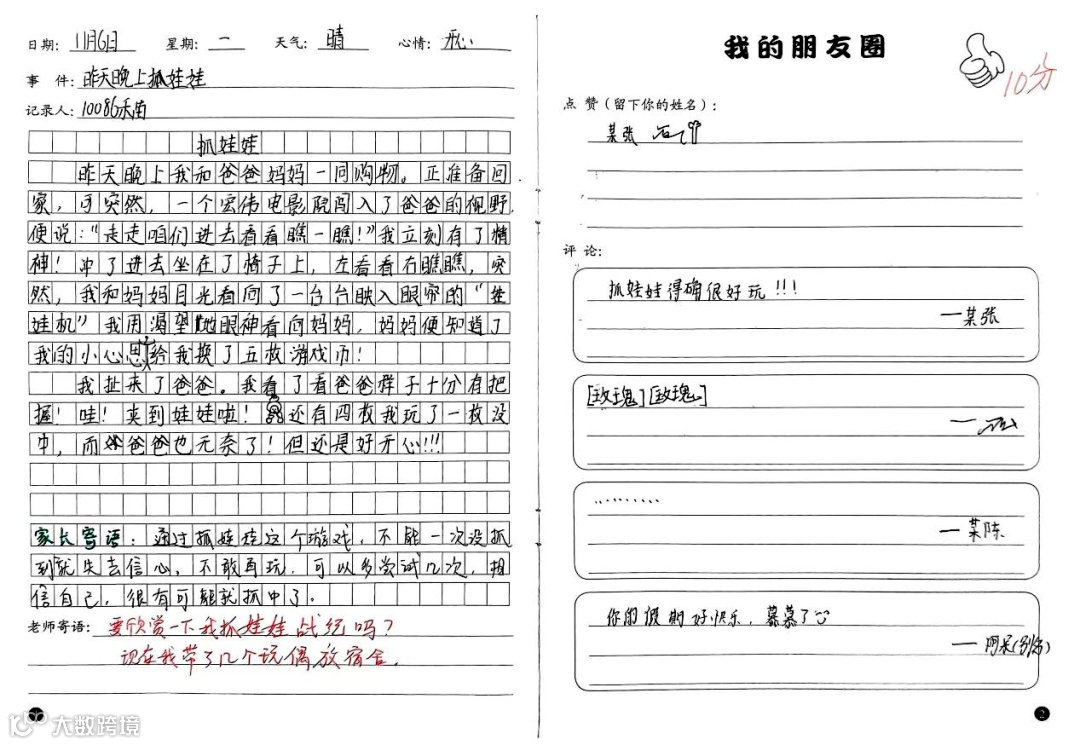 日期：11月6日 星期：一 天气：晴 心情：开心
事 件：昨天晚上抓娃娃
记录人：10086禾苗
抓娃娃
昨天晚上我和爸爸妈妈一同购物。正准备回
家，可突然，一个宏伟电影院闯入了爸爸的视野，
便说："走走咱们进去看看瞧一瞧！"我立刻有了精
神！冲了进去坐在了椅子上，左看看右瞧瞧，突
然，我和妈妈目光看向了一台台映入眼帘的"娃
娃机"我用渴望地眼神看向妈妈，妈妈便知道了
我的小心思给我换了五枚游戏币！
我扯来了爸爸。我看了看爸爸样子十分有把
握！哇！夹到娃娃啦！还有四枚我玩了一枚没
中，而爸爸也无奈了！但还是好开心!!!
家长寄语：通过抓娃娃这个游戏，不能一次没抓
到就失去信心，不敢再玩，可以多尝试几次，相
信自己，很有可能就抓中了。
老师寄语：要欣赏一下我抓娃娃战绩吗？
现在我带了几个玩偶放宿舍。
我的朋友圈
10分
点 赞（留下你的姓名）：
某张
评 论：
抓娃娃得确很好玩!!!
—某张
[玫瑰][玫瑰]
.........
—某陈
你的假期好快乐，慕慕了
2
大数跨境